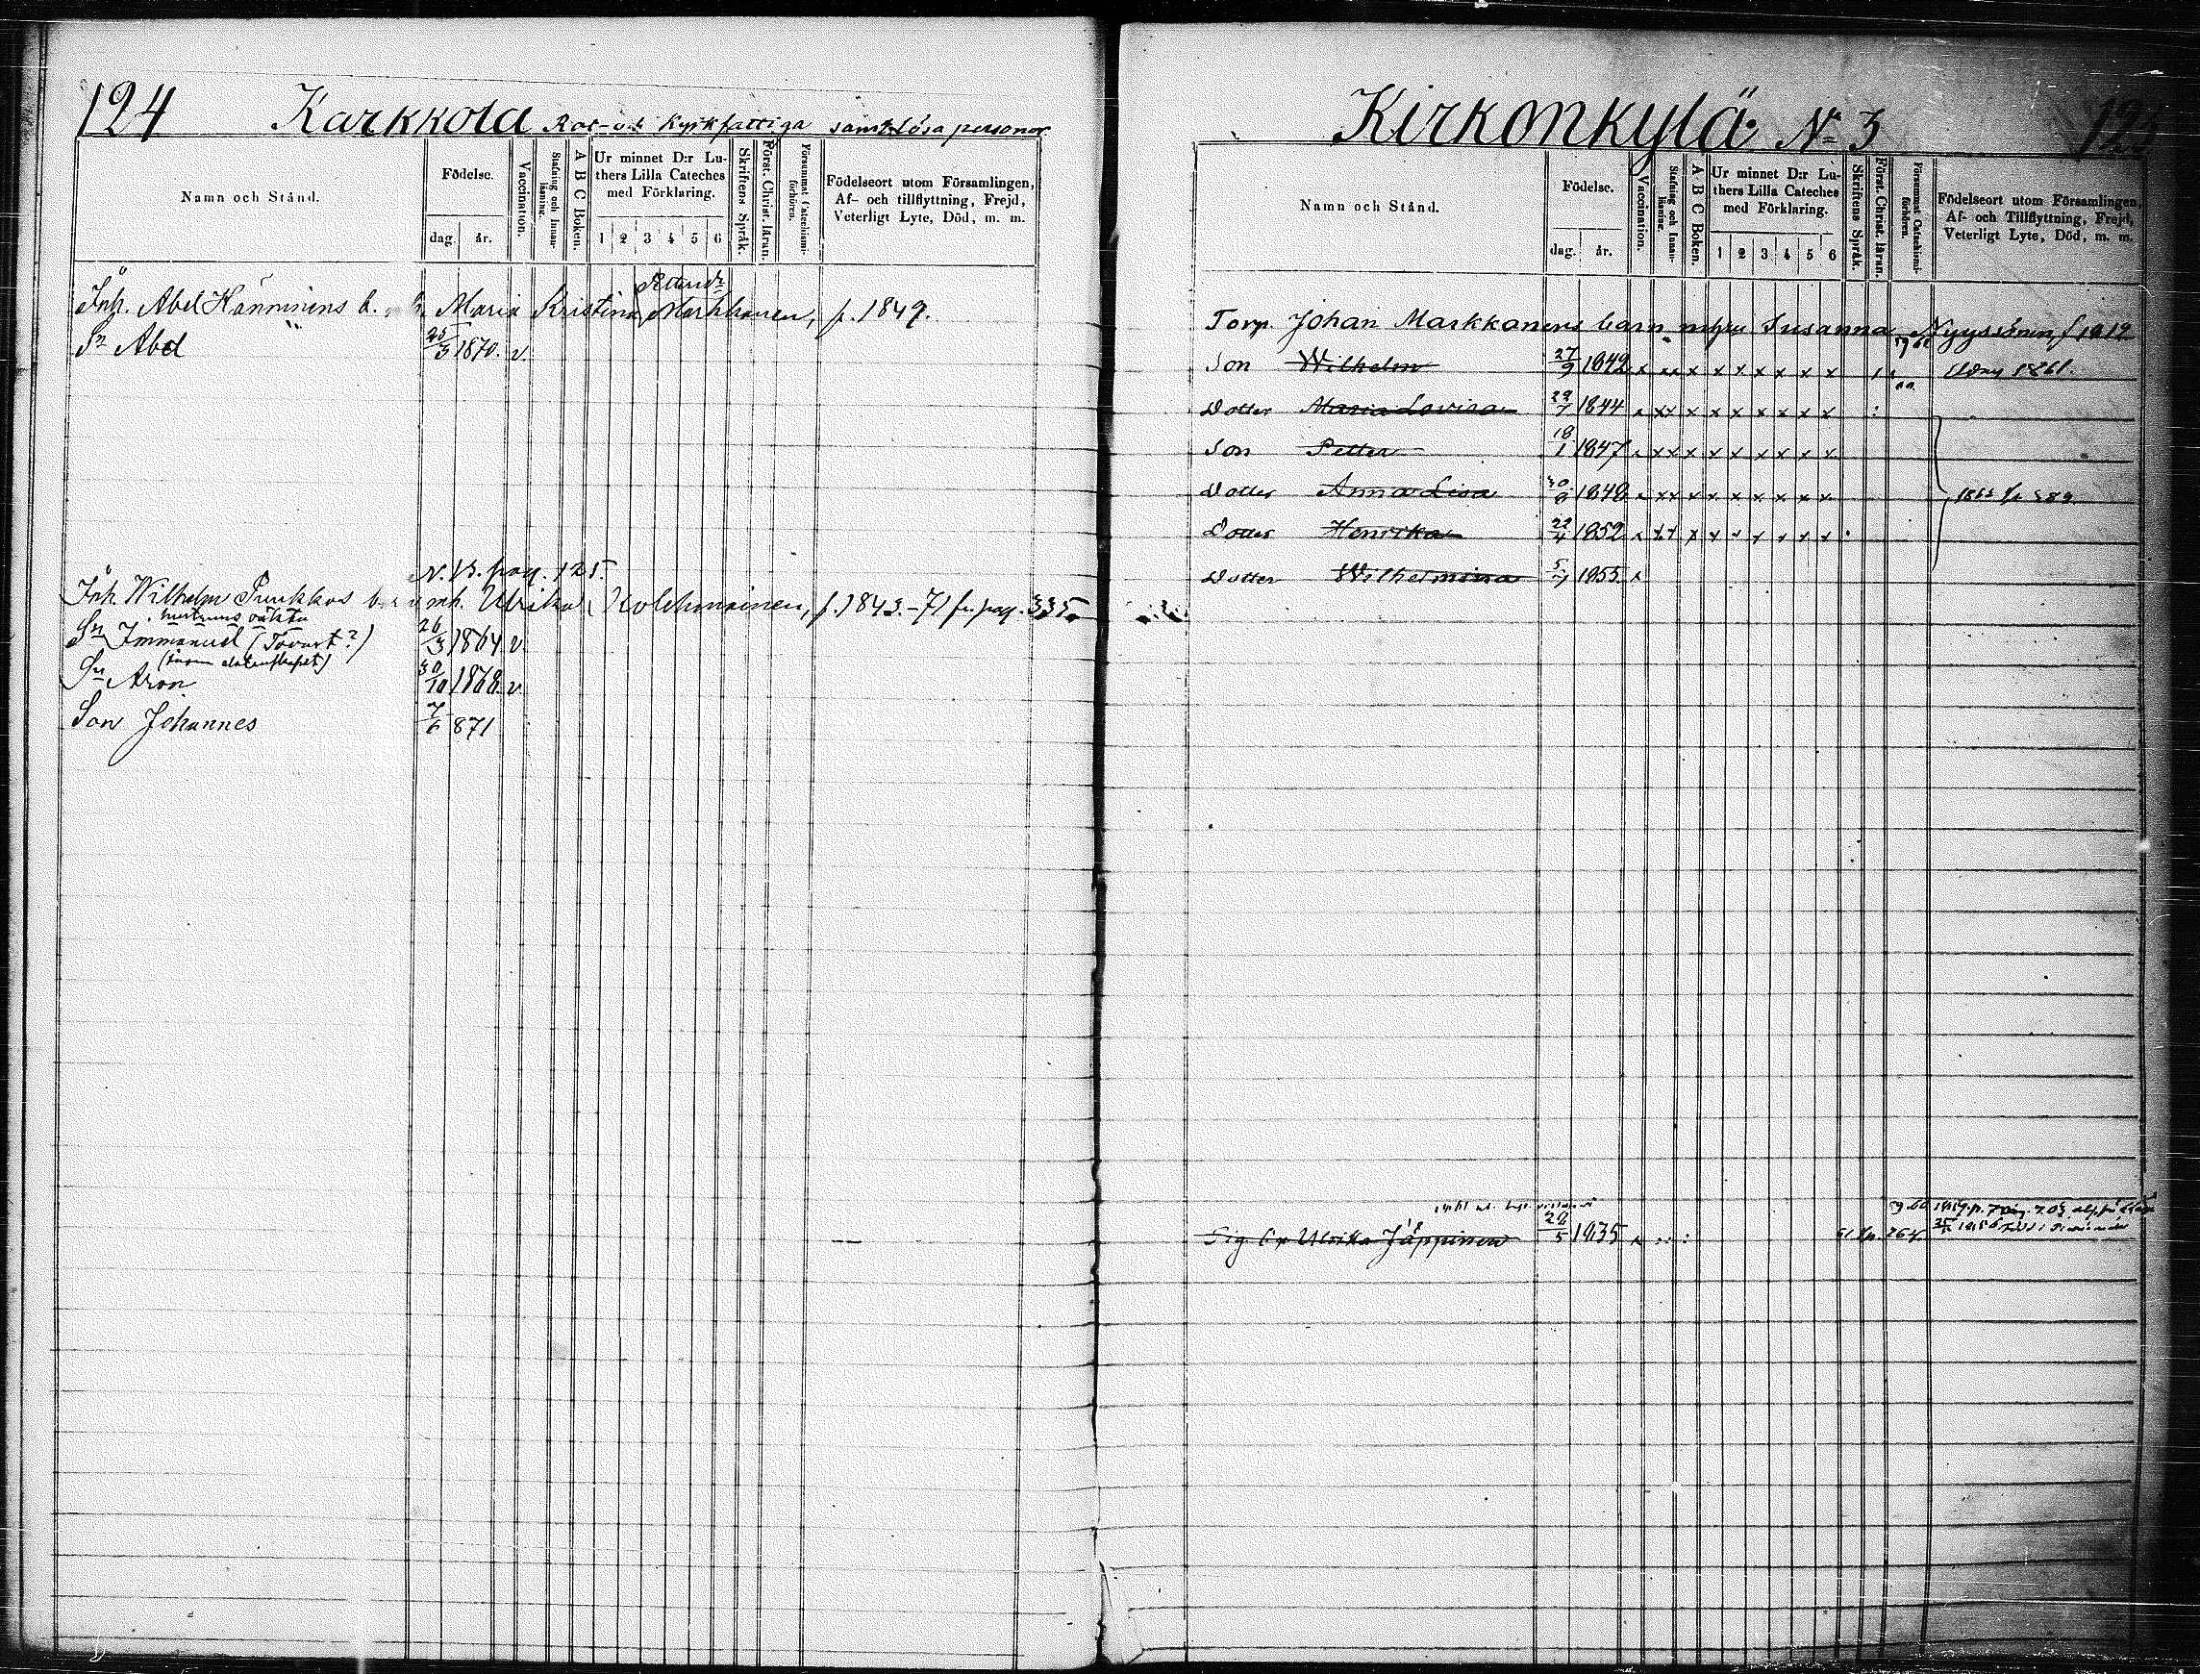 124 Karkkola Rot- och Kyrkfattiga samt Lösa personer
Namn och Stånd.
Födelse.
dag. år.
Vaccination.
Stafning och Innanläsning.
A B C Boken.
Ur minnet D:r Luthers Lilla Cateches med Förklaring.
1 2 3 4 5 6
Skriftens Språk.
Först. Christ. läran.
Försummat Catechismiförhören.
Födelseort utom Församlingen,
Af- och tillflyttning, Frejd,
Veterligt Lyte, Död, m. m.
Pettersdr
Inh. Abel Hänninens b. Maria Kristina Markkanen, f. 1849.
Sn Abel 25/3 1870. v.
N.B. pag. 125.
Inh. Wilhelm Puukkos b. mh. Ulrika Kolehmainen, f. 1843.-71 fr. pag. 335
hustruns oäkta
Sn Immanuel (Tovart?) 26/3 1864 v.
Sn Aron 30/10 1868 v.
Son Johannes 7/6 871
Kirkonkylä No 3
Namn och Stånd.
Födelse.
dag. år.
Vaccination.
Stafning och Innanläsning.
A B C Boken.
Ur minnet D:r Luthers Lilla Cateches med Förklaring.
1 2 3 4 5 6
Skriftens Språk.
Först. Christ. läran.
Försummat Catechismiförhören.
Födelseort utom Församlingen,
Af- och Tillflyttning, Frejd,
Veterligt Lyte, Död, m. m.
Torp. Johan Markkanens barn m. Susanna Nyyssönen, f 1812
Son Wilhelm 27/9 1842 x xx x x x x x x x 1861.
Dotter Maria Lovisa 29/7 1844 x xx x x x x x x x
Son Petter 18/1 1847 x xx x x x x x x x
Dotter Anna Lisa 30/8 1848 x xx x x x x x x x
Dotter Henrika 22/4 1852 x xx x x x x x x x
Dotter Wilhelmina 5/7 1855 x
Ulrika Jäppinen 28/5 1835 264.